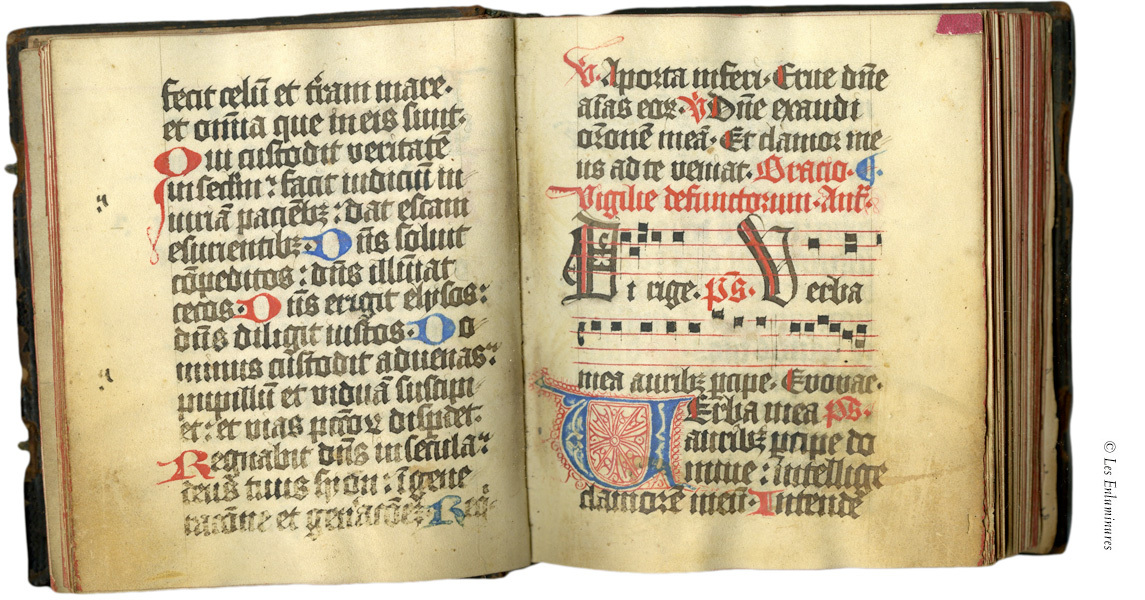 fecit celū et t̄ram mare·
et om̄ia que in eis sunt·
Qui custodit veritatē
in sec̄lm : facit iudiciū in
iuriā pacientibꝫ : dat escam
esurientibꝫ· Dn̄s soluit
cōpeditos : dn̄s illūiat
cecos· Dn̄s erigit elysos :
dn̄s diligit iustos· Do
minus custodit aduenas :
pupillū et viduā suscipi
et : et vias pctōꝝ disp̄det·
Regnabit dn̄s in secula :
deus tuus syon : ī gene
racōne et
℣· A porta inferi· Erue dn̄e
aīas eoꝝ· ℣ Dn̄e exaudi
orōnem meā· Et clamor me
us ad te veniat· Oracio·
Vigilie defunctorum· Ant̄·
Dirige· ps̄· Verba
mea auribꝫ ꝑcipe· Euouae·
Verba mea ps̄·
auribꝫ ꝑcipe do
mine : intellige
clamorē meū· Intende
© Les Enluminures